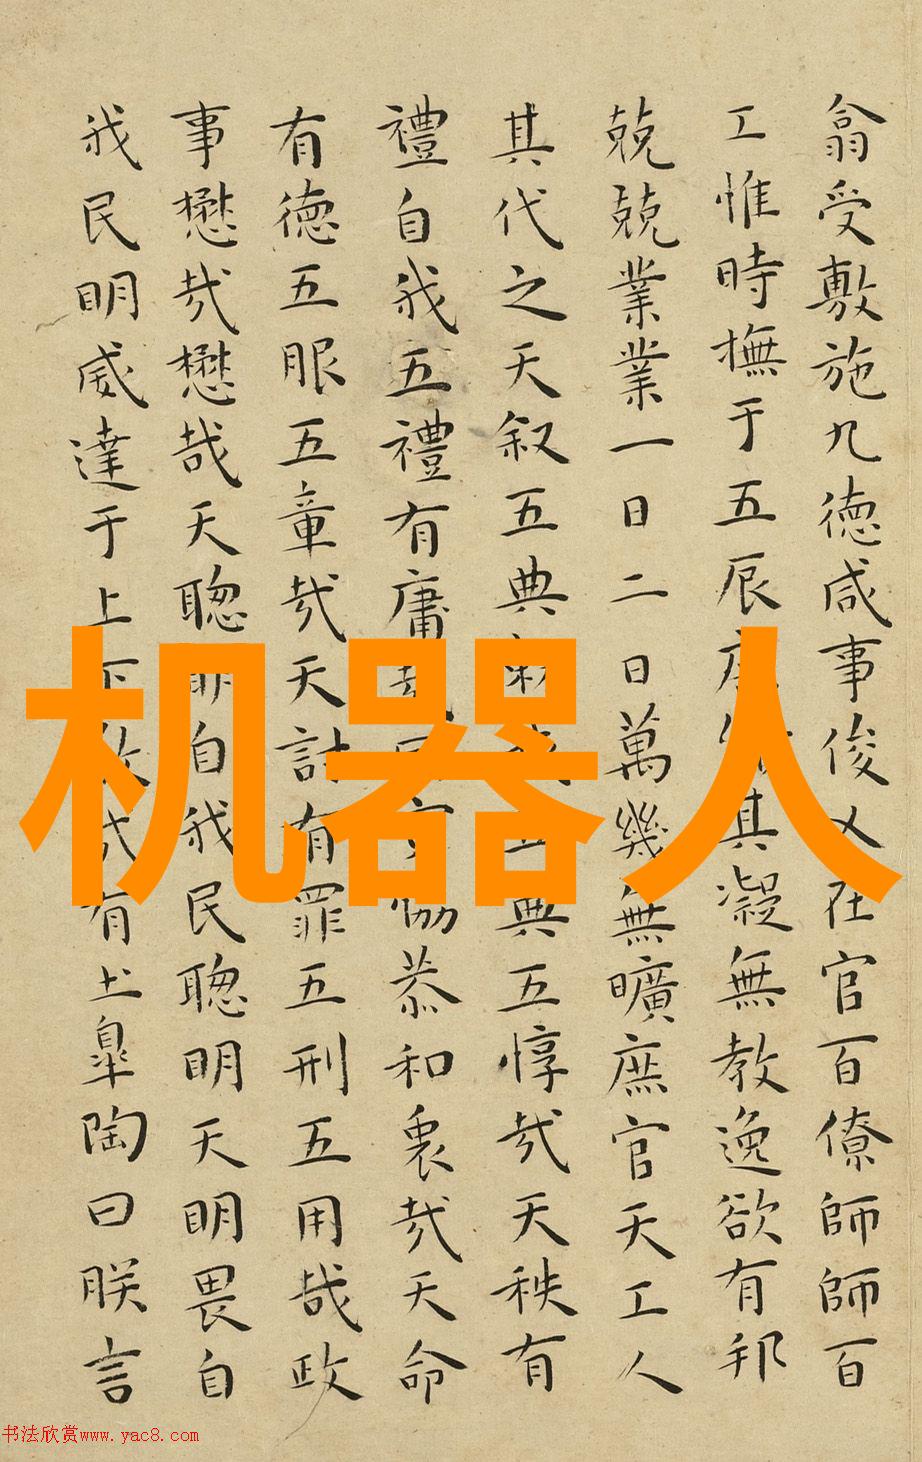 翕受敷施九德咸事俊乂在官百僚師師百
工惟時撫于五辰其凝無教逸欲有邦
兢兢業業一日二日萬幾無曠庶官天工人
其代之天叙五典五典五惇哉天秩有
禮自我五禮有庸協恭和衷哉天命
有德五服五章哉天討有罪五刑五用哉政
事懋哉懋哉天聰自我民聰明天明畏自
我民明威達于上下哉有土皋陶曰朕言
机器人
书法欣赏www.yac8.com